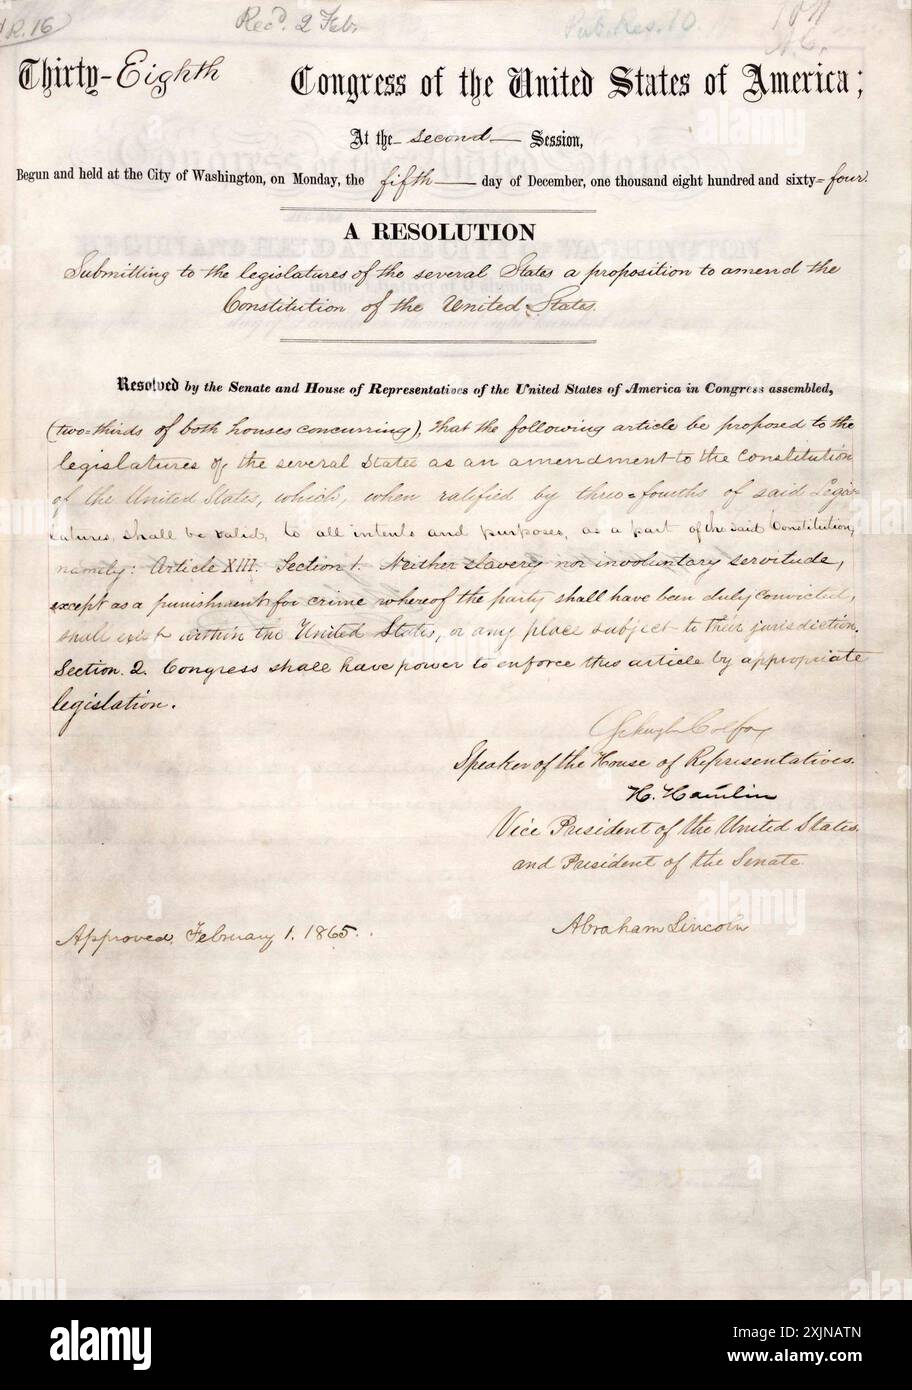 R. 16
Rec'd. 2 Feb.
Pub. Res. 10.
Thirty-Eighth Congress of the United States of America;
At the second Session,
Begun and held at the City of Washington, on Monday, the fifth day of December, one thousand eight hundred and sixty-four.
A RESOLUTION
Submitting to the legislatures of the several States a proposition to amend the
Constitution of the United States.
Resolved by the Senate and House of Representatives of the United States of America in Congress assembled,
(two-thirds of both houses concurring), that the following article be proposed to the
legislatures of the several States as an amendment to the Constitution
of the United States, which, when ratified by three-fourths of said Legis-
latures, shall be valid, to all intents and purposes, as a part of the said Constitution,
namely: Article XIII. Section 1. Neither slavery nor involuntary servitude,
except as a punishment for crime whereof the party shall have been duly convicted,
shall exist within the United States, or any place subject to their jurisdiction.
Section. 2. Congress shall have power to enforce this article by appropriate
legislation.
Schuyler Colfax
Speaker of the House of Representatives.
H. Hamlin
Vice President of the United States,
and President of the Senate.
Approved, February 1. 1865.
Abraham Lincoln
alamy
Image ID: 2XJNATN
www.alamy.com